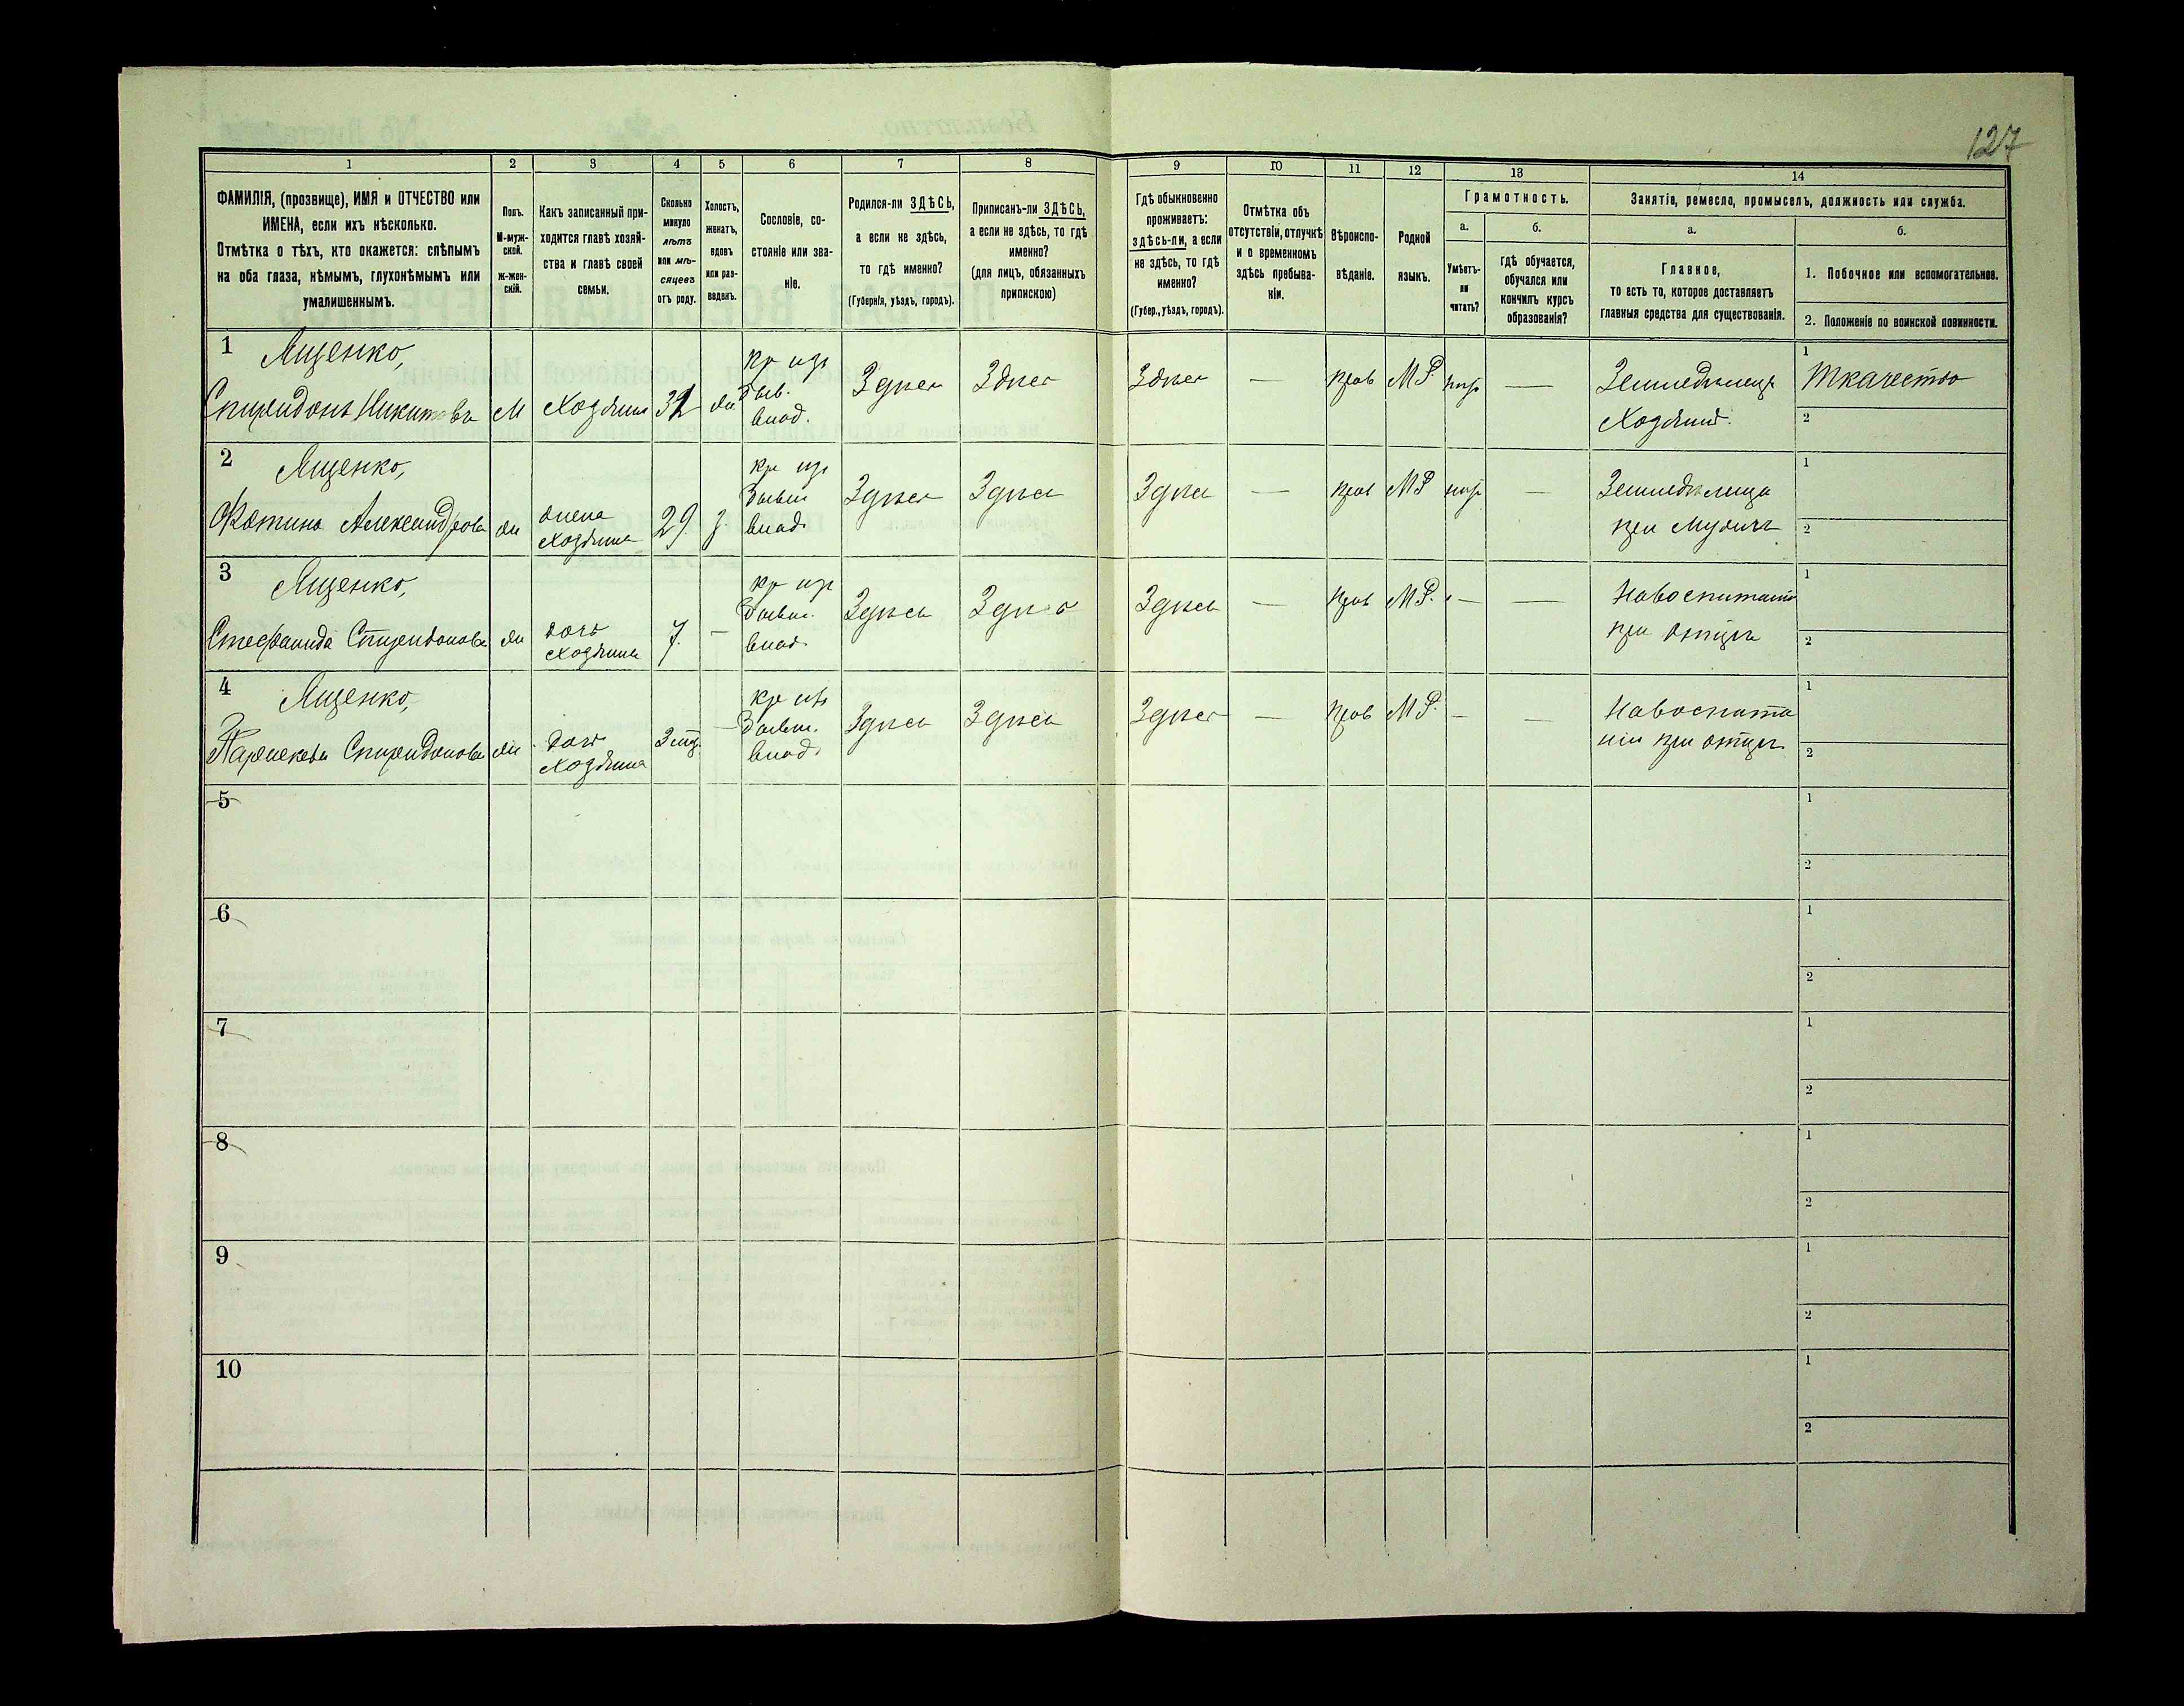 127
1 2 3 4 5 6 7 8 9 10 11 12 13 14
ФАМИЛІЯ, (прозвище), ИМЯ и ОТЧЕСТВО или
ИМЕНА, если ихъ нѣсколько.
Отмѣтка о тѣхъ, кто окажется: слѣпымъ
на оба глаза, нѣмымъ, глухонѣмымъ или
умалишеннымъ.
Полъ.
М-муж-
ской.
ж-жен-
скій.
Какъ записанный при-
ходится главѣ хозяй-
ства и главѣ своей
семьи.
Сколько
минуло
лѣтъ
или мѣ-
сяцевъ
отъ роду.
Холостъ,
женатъ,
вдовъ
или раз-
веденъ.
Сословіе, со-
стояніе или зва-
ніе.
Родился-ли ЗДѢСЬ,
а если не здѣсь,
то гдѣ именно?
(Губернія, уѣздъ, городъ).
Приписанъ-ли ЗДѢСЬ,
а если не здѣсь, то гдѣ
именно?
(для лицъ, обязанныхъ
припискою)
Гдѣ обыкновенно
проживаетъ:
здѣсь-ли, а если
не здѣсь, то гдѣ
именно?
(Губер., уѣздъ, городъ).
Отмѣтка объ
отсутствіи, отлучкѣ
и о временномъ
здѣсь пребыва-
ніи.
Вѣроиспо-
вѣданіе.
Родной
языкъ.
Грамотность.
а.
Умѣетъ-
ли
читать?
б.
гдѣ обучается,
обучался или
кончилъ курсъ
образованія?
Занятіе, ремесло, промыселъ, должность или служба.
а.
Главное,
то есть то, которое доставляетъ
главныя средства для существованія.
б.
1. Побочное или вспомогательное.
2. Положеніе по воинской повинности.
1 Ященко,
Спиридонъ Никитовъ М Хозяинъ
кр изъ
быв.
влад.
Здѣсь Здѣсь Здѣсь — прав М.Р. —
Земледѣлецъ
Хозяинъ.
1 Ткачество
2
2 Ященко,
Фотина Александрова ж
жена
хозяина
29 з.
кр изъ
бывш
влад.
Здѣсь Здѣсь Здѣсь — прав М.Р. —
Земледѣлица
при мужѣ
1
2
3 Ященко,
Стефанида Спиридонова ж
дочь
хозяина
7 —
кр изъ
бывш.
влад.
Здѣсь Здѣсь Здѣсь — прав М.Р. — —
На воспитани
при отцѣ
1
2
4 Ященко,
Параскева Спиридонова ж
дочь
хозяина
—
кр изъ
бывш.
влад.
Здѣсь Здѣсь Здѣсь — прав М.Р. — —
На воспита
ніи при отцѣ
1
2
5
1
2
6
1
2
7
1
2
8
1
2
9
1
2
10
1
2